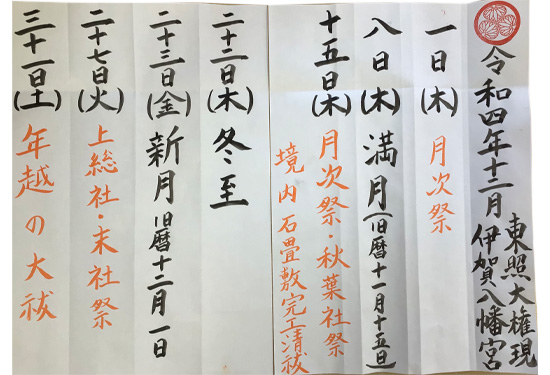 令和四年十二月
東照大権現
伊賀八幡宮
一日(木) 月次祭
八日(木) 満月(旧暦十一月十五日)
十五日(木) 月次祭・秋葉社祭
境内石畳敷完工清祓
二十二日(木) 冬至
二十三日(金) 新月 旧暦十二月一日
二十七日(火) 上総社・末社祭
三十一日(土) 年越の大祓